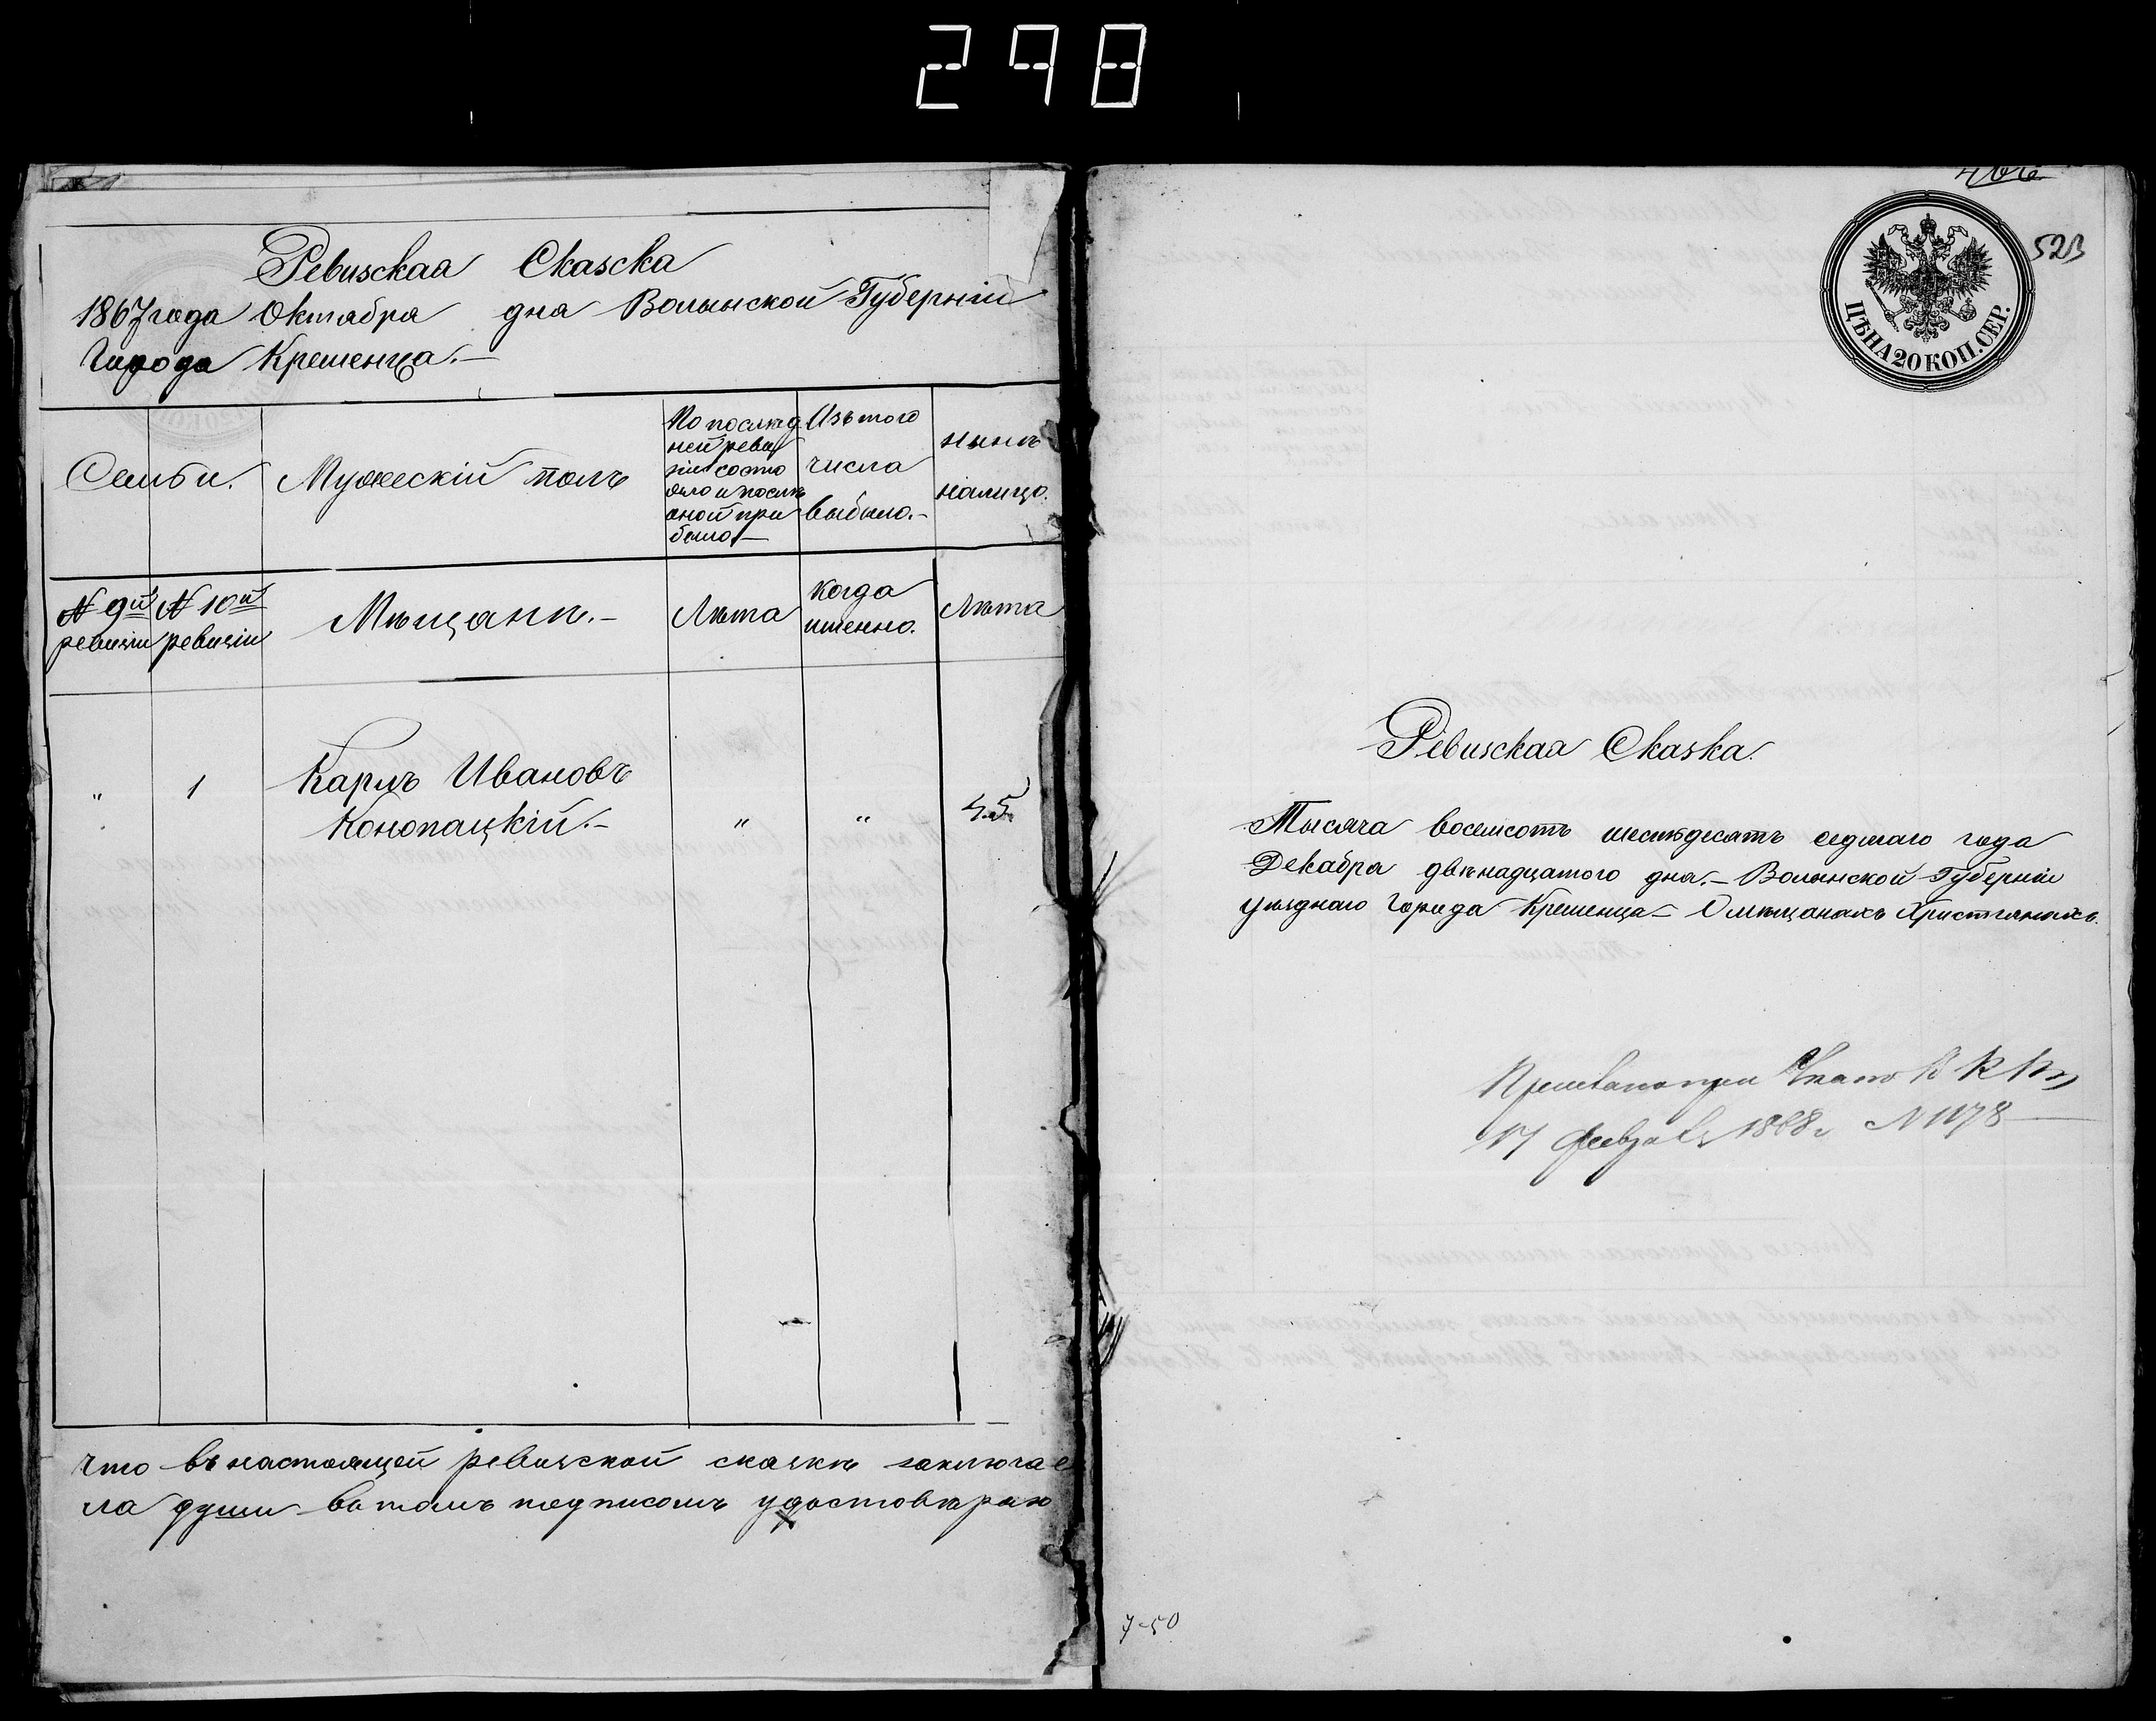 298
Ревизская Сказска
1867 года Октабра дна Волынской Губернiи
Города Кременца.—
Семьи.
Мужескiй полъ
По послѣд
ней реви
зiи состо
яло и послѣ
оной при
было.—
Изъ того
числа
выбыло.—
нынѣ
налицо.
№ 9й
ревизiи
№ 10й
ревизiи
Мѣщанѣ.—
Лѣта
когда
именно.
Лѣта
" 1 Карлъ Ивановъ
Конопацкiй.— " " 45
что въ настоящей ревизской сказкѣ заключае
ла души въ томъ подписомъ удостовѣраю
523
ЦѢНА 20 КОП. СЕР.
Ревизская Сказка.
Тысяча восемсотъ шестьдесатъ седмаго года
Декабра двѣнадцатого дна.— Волынской Губернiи
уѣзднаго Города Кременца— О мѣщанахъ Христiянахъ.
17 февраля 1868 г № 1178
7-50